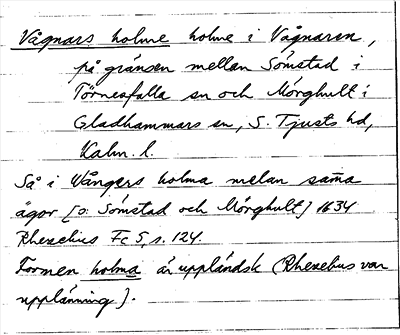 Vågnars holme holme i Vågnaren,
på gränsen mellan Sömstad i
Törnesfalla sn och Mörghult i
Gladhammars sn, S. Tjusts hd,
Kalm. l.
Så i Wångers holma melan sam̄a
ägor [o: Sömstad och Mörghult] 1634
Rhezelius Fc 5 s. 124.
Formen holma är uppländsk (Rhezelius var
upplänning).